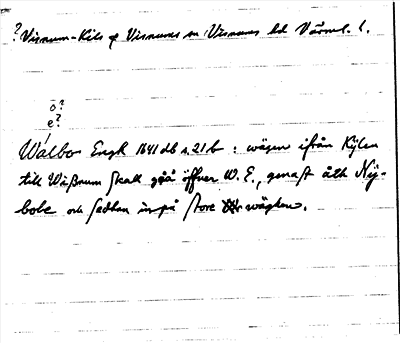 ? Visnum-Kils sn Visnums hd Värml. l.
o?
e?
Walbo Engk 1641 db s. 21 b : wägen ifrån Kÿlen
till Wißnum skall gåå öffuer W. E., genast åth Nÿ-
bole och sedhen in på store wäghen.